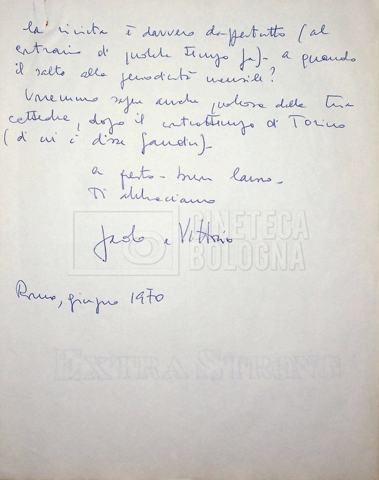 la rivista è davvero dappertutto (al
contrario di qualche tempo fa)- a quando
il salto alla periodicità mensile?
Vorremmo sapere anche qualcosa della tua
cattedra, dopo il contrattempo di Torino
(di cui ci disse
a presto - buon lavoro -
Ti abbracciamo
Paolo e Vittorio
CINETECA
BOLOGNA
Roma, giugno 1970
EXTRA STRONG